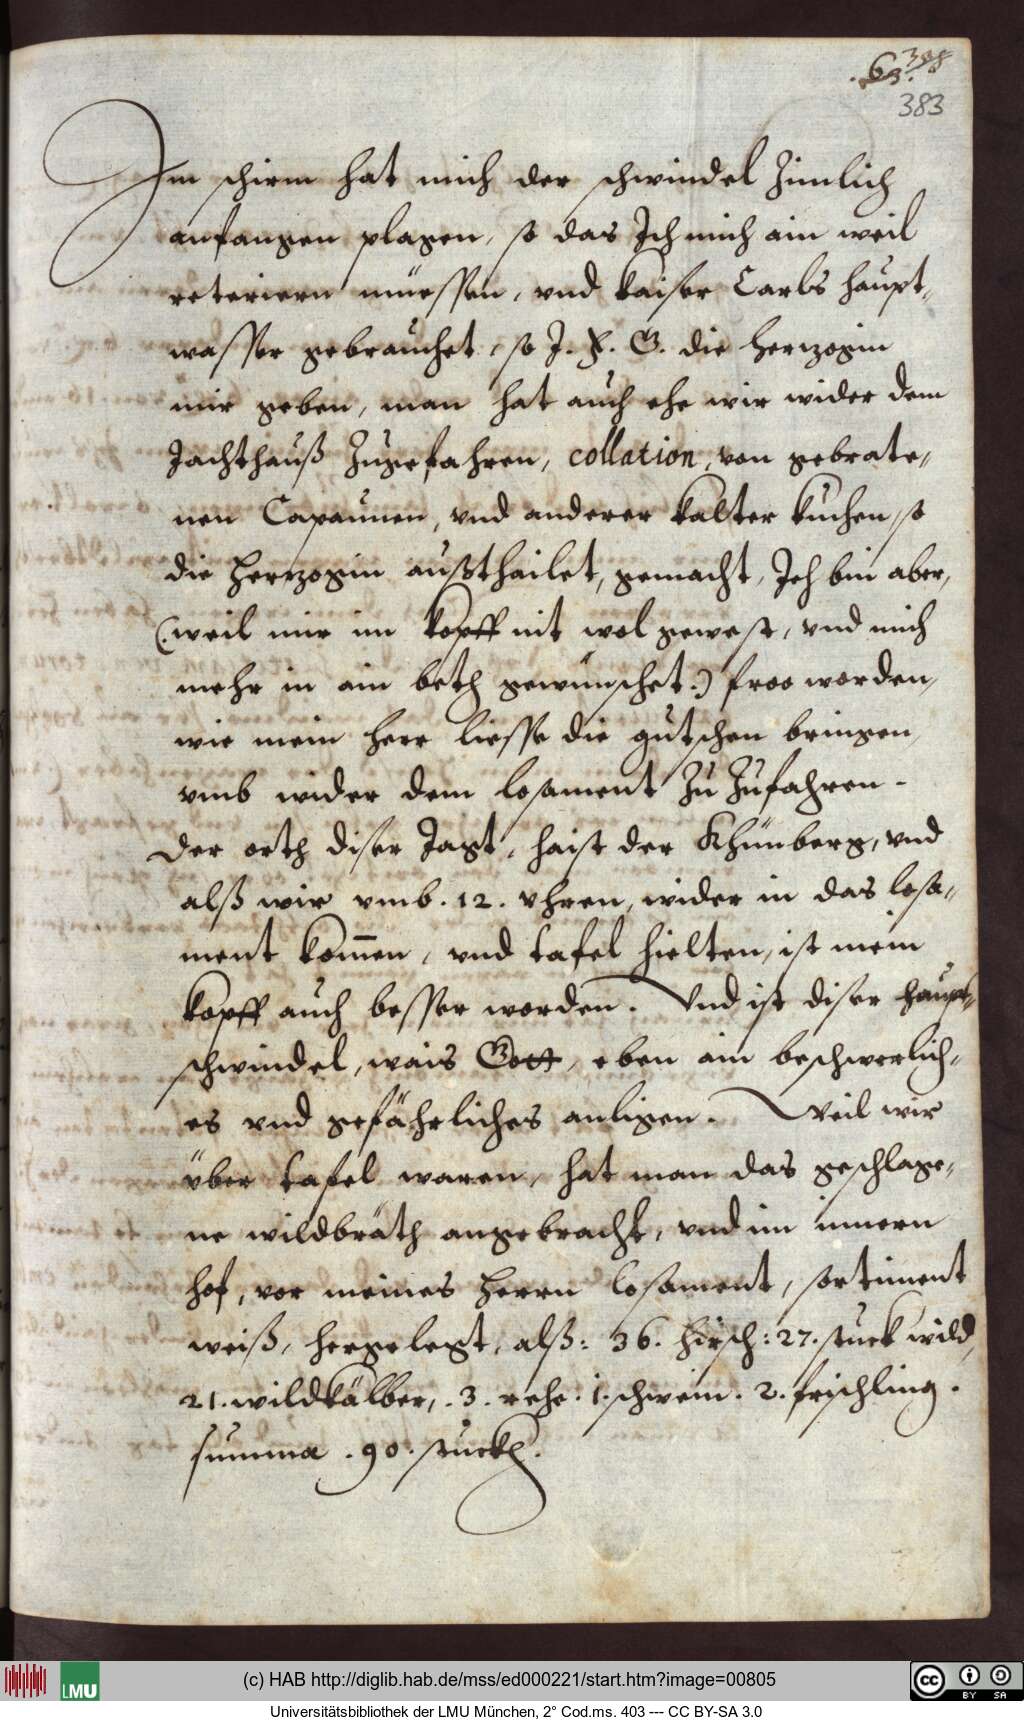 63. 398
383
Im schirm hat mich der schwindel Zimlich
anfangen plagen, so das Ich mich ain weil
reteriern müessen, vnd kaiser Carls haupt-
wasser gebrauchet, so J. F. G. die hertzogin
mir geben, man hat auch ehe wir wider dem
Jachthauß Zugefahren, collation, von gebrate-
nen Capaunen, vnd anderer kalter kuchen, so
die hertzogin außthailet, gemacht, Ich bin aber,
(:weil mir im kopff nit wol gewest, vnd mich
mehr in ain beth gewünschet:) froo worden,
wie mein herr liesse die gutschen bringen,
vmb wider dem losament Zu Zufahren.
Der orth diser Jagt, haist der Khünberg, vnd
alß wir vmb .12. vhren, wider in das losa-
ment kom̄en, vnd tafel hielten, ist mein
kopff auch besser worden. Vnd ist diser haupt-
schwindel, wais Gott, eben ain beschwerlich-
es vnd gefährliches anligen. Weil wir
über tafel waren, hat man das geschlage-
ne wildbräth angebracht, vnd im innern
hof, vor meines herrn losament, sortiment
weiß, hergelegt, alß: 36. hirsch: 27. stuck wild,
21. wildkälber, .3. rehe. 1. schwein. 2. frischling.
summa .90. stuckh.
(c) HAB http://diglib.hab.de/mss/ed000221/start.htm?image=00805
Universitätsbibliothek der LMU München, 2° Cod.ms. 403 --- CC BY-SA 3.0
LMU
cc
BY
SA